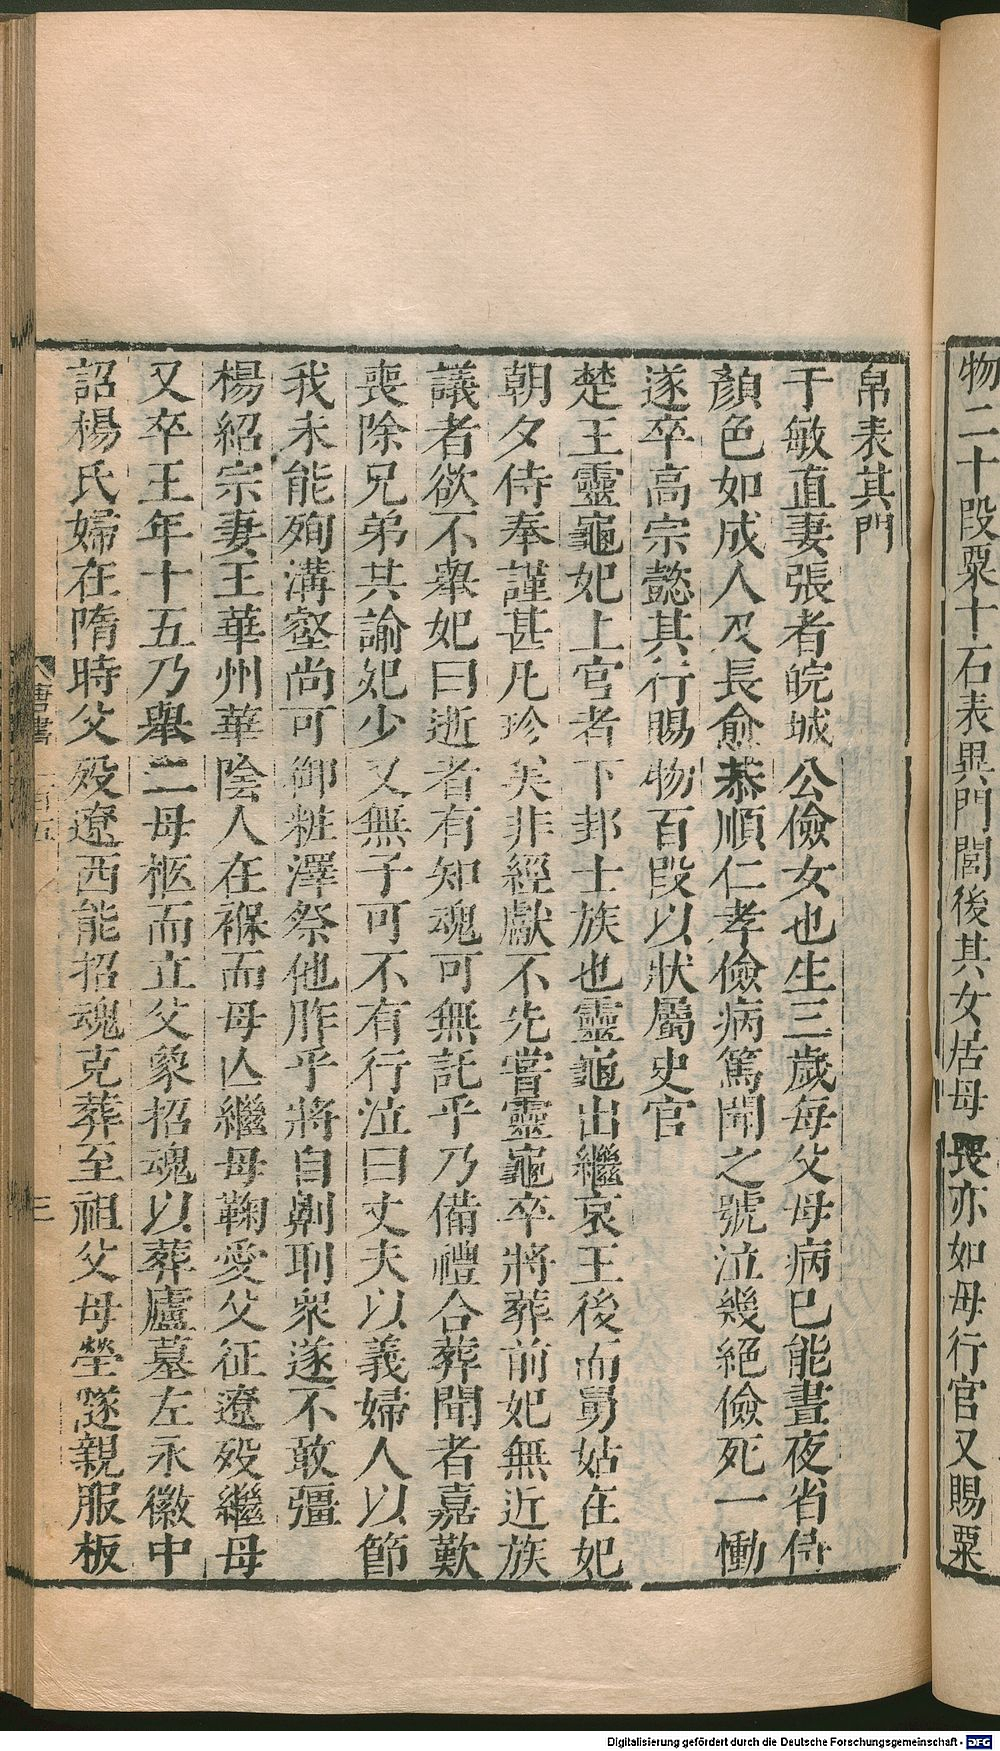 物二十段粟十石表異門閭後其女居母喪亦如母行官又賜粟
帛表其門
于敏直妻張者皖城公儉女也生三歲每父母病已能晝夜省侍
顏色如成人及長愈恭順仁孝儉病篤聞之號泣幾絕儉死一慟
遂卒高宗懿其行賜物百段以狀屬史官
楚王靈龜妃上官者下邽士族也靈龜出繼哀王後而舅姑在妃
朝夕侍奉謹甚凡珍美非經獻不先嘗靈龜卒將葬前妃無近族
議者欲不舉妃曰逝者有知魂可無託乎乃備禮合葬聞者嘉歎
喪除兄弟共諭妃少又無子可不有行泣曰丈夫以義婦人以節
我未能殉溝壑尚可御粧澤祭他胙乎將自劓刵衆遂不敢彊
楊紹宗妻王華州華陰人在褓而母亾繼母鞠愛父征遼歿繼母
又卒王年十五乃舉二母柩而立父象招魂以葬廬墓左永徽中
詔楊氏婦在隋時父歿遼西能招魂克葬至祖父母塋隧親服板
唐書 一百五
三
Digitalisierung gefördert durch die Deutsche Forschungsgemeinschaft - DFG